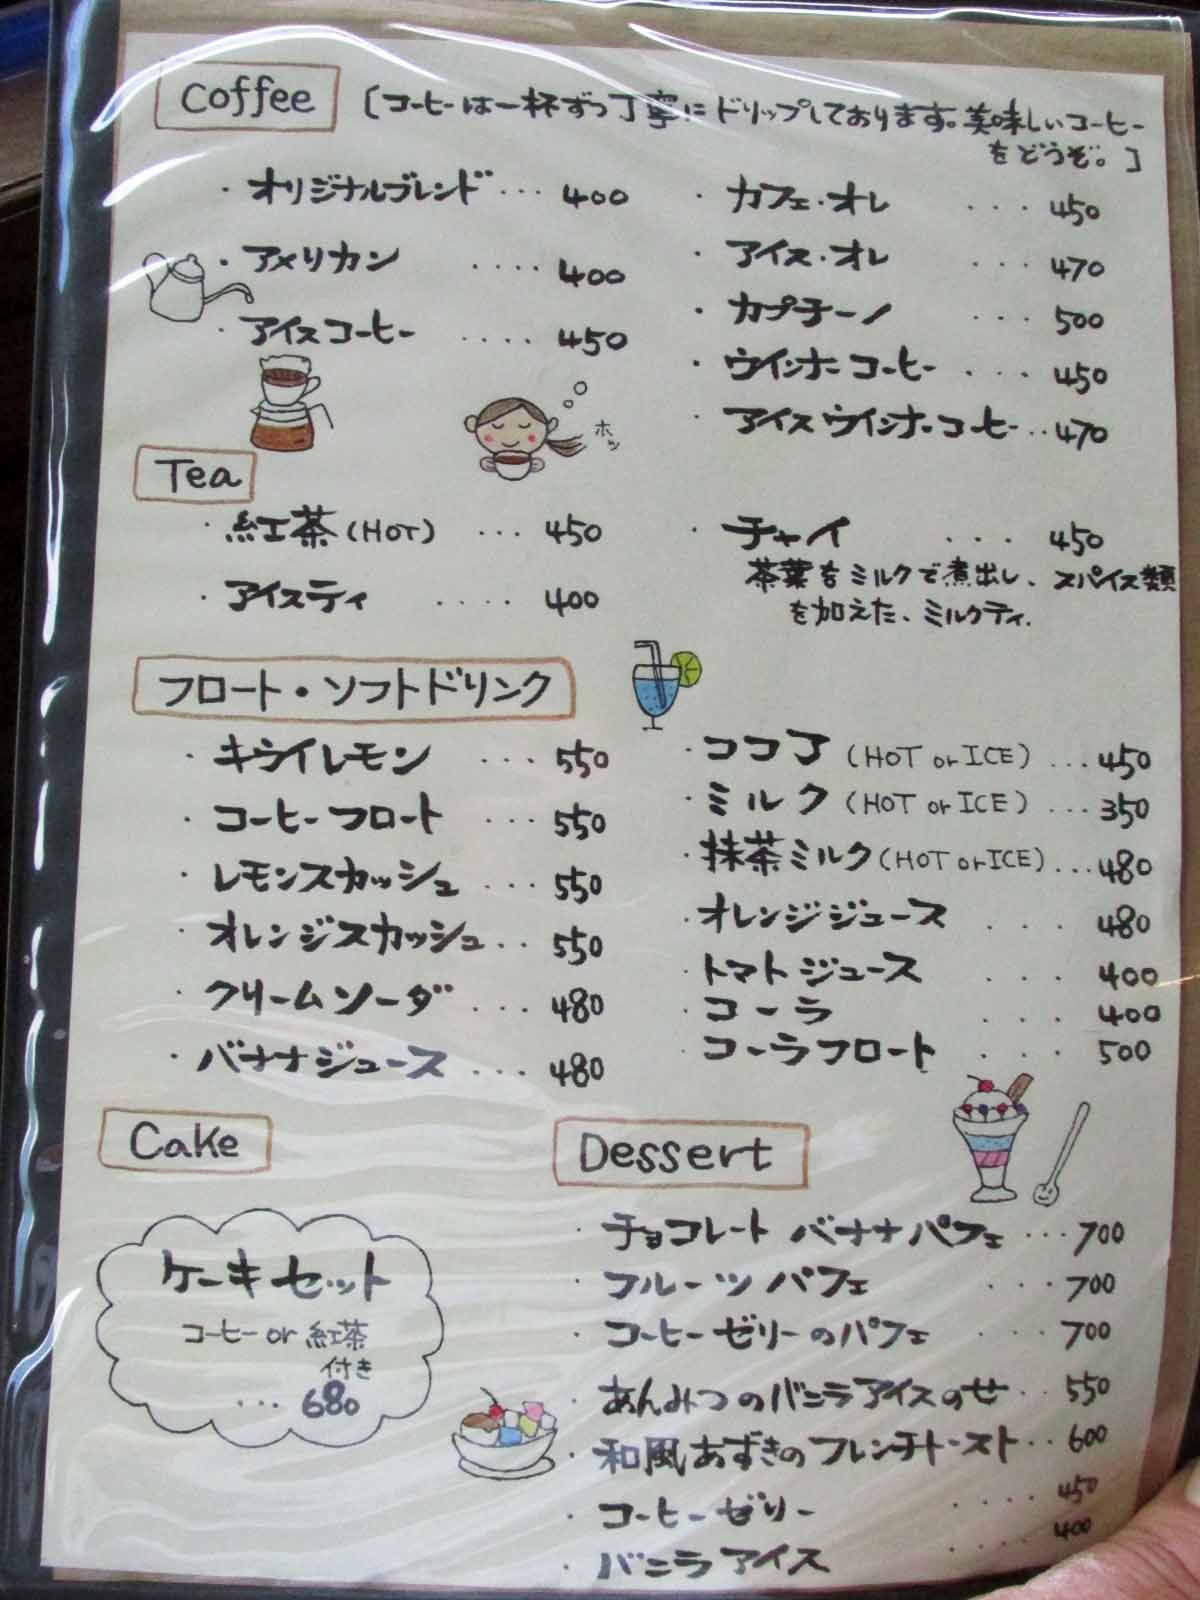 Coffee
〔コーヒーは一杯ずつ丁寧にドリップしております。美味しいコーヒー
をどうぞ。〕
・オリジナルブレンド・・・400
・アメリカン ・・・・400
・アイスコーヒー ・・・・450
・カフェ・オレ ・・・450
・アイス・オレ ・・・470
・カプチーノ ・・・500
・ウインナーコーヒー ・・・450
・アイスウインナーコーヒー・・470
ホッ
Tea
・紅茶(HOT) ・・・450
・アイスティ ・・・・400
・チャイ ・・・450
茶葉をミルクで煮出し、スパイス類
を加えた、ミルクティ.
フロート・ソフトドリンク
・キウイレモン ・・・550
・コーヒーフロート ・・・550
・レモンスカッシュ ・・・550
・オレンジスカッシュ・・550
・クリームソーダ ・・・480
・バナナジュース ・・・480
・ココア(HOT or ICE)・・・450
・ミルク(HOT or ICE)・・・350
・抹茶ミルク(HOT or ICE)・・・480
・オレンジジュース ・・・480
・トマトジュース ・・・400
・コーラ ・・・400
・コーラフロート ・・・500
Cake
ケーキセット
コーヒー or 紅茶
付き
・・・680
Dessert
・チョコレート バナナパフェ・・・700
・フルーツパフェ ・・・700
・コーヒーゼリーのパフェ ・・・700
・あんみつのバニラアイスのせ・・550
・和風あずきのフレンチトースト・・600
・コーヒーゼリー ・・・・450
・バニラアイス ・・・・400